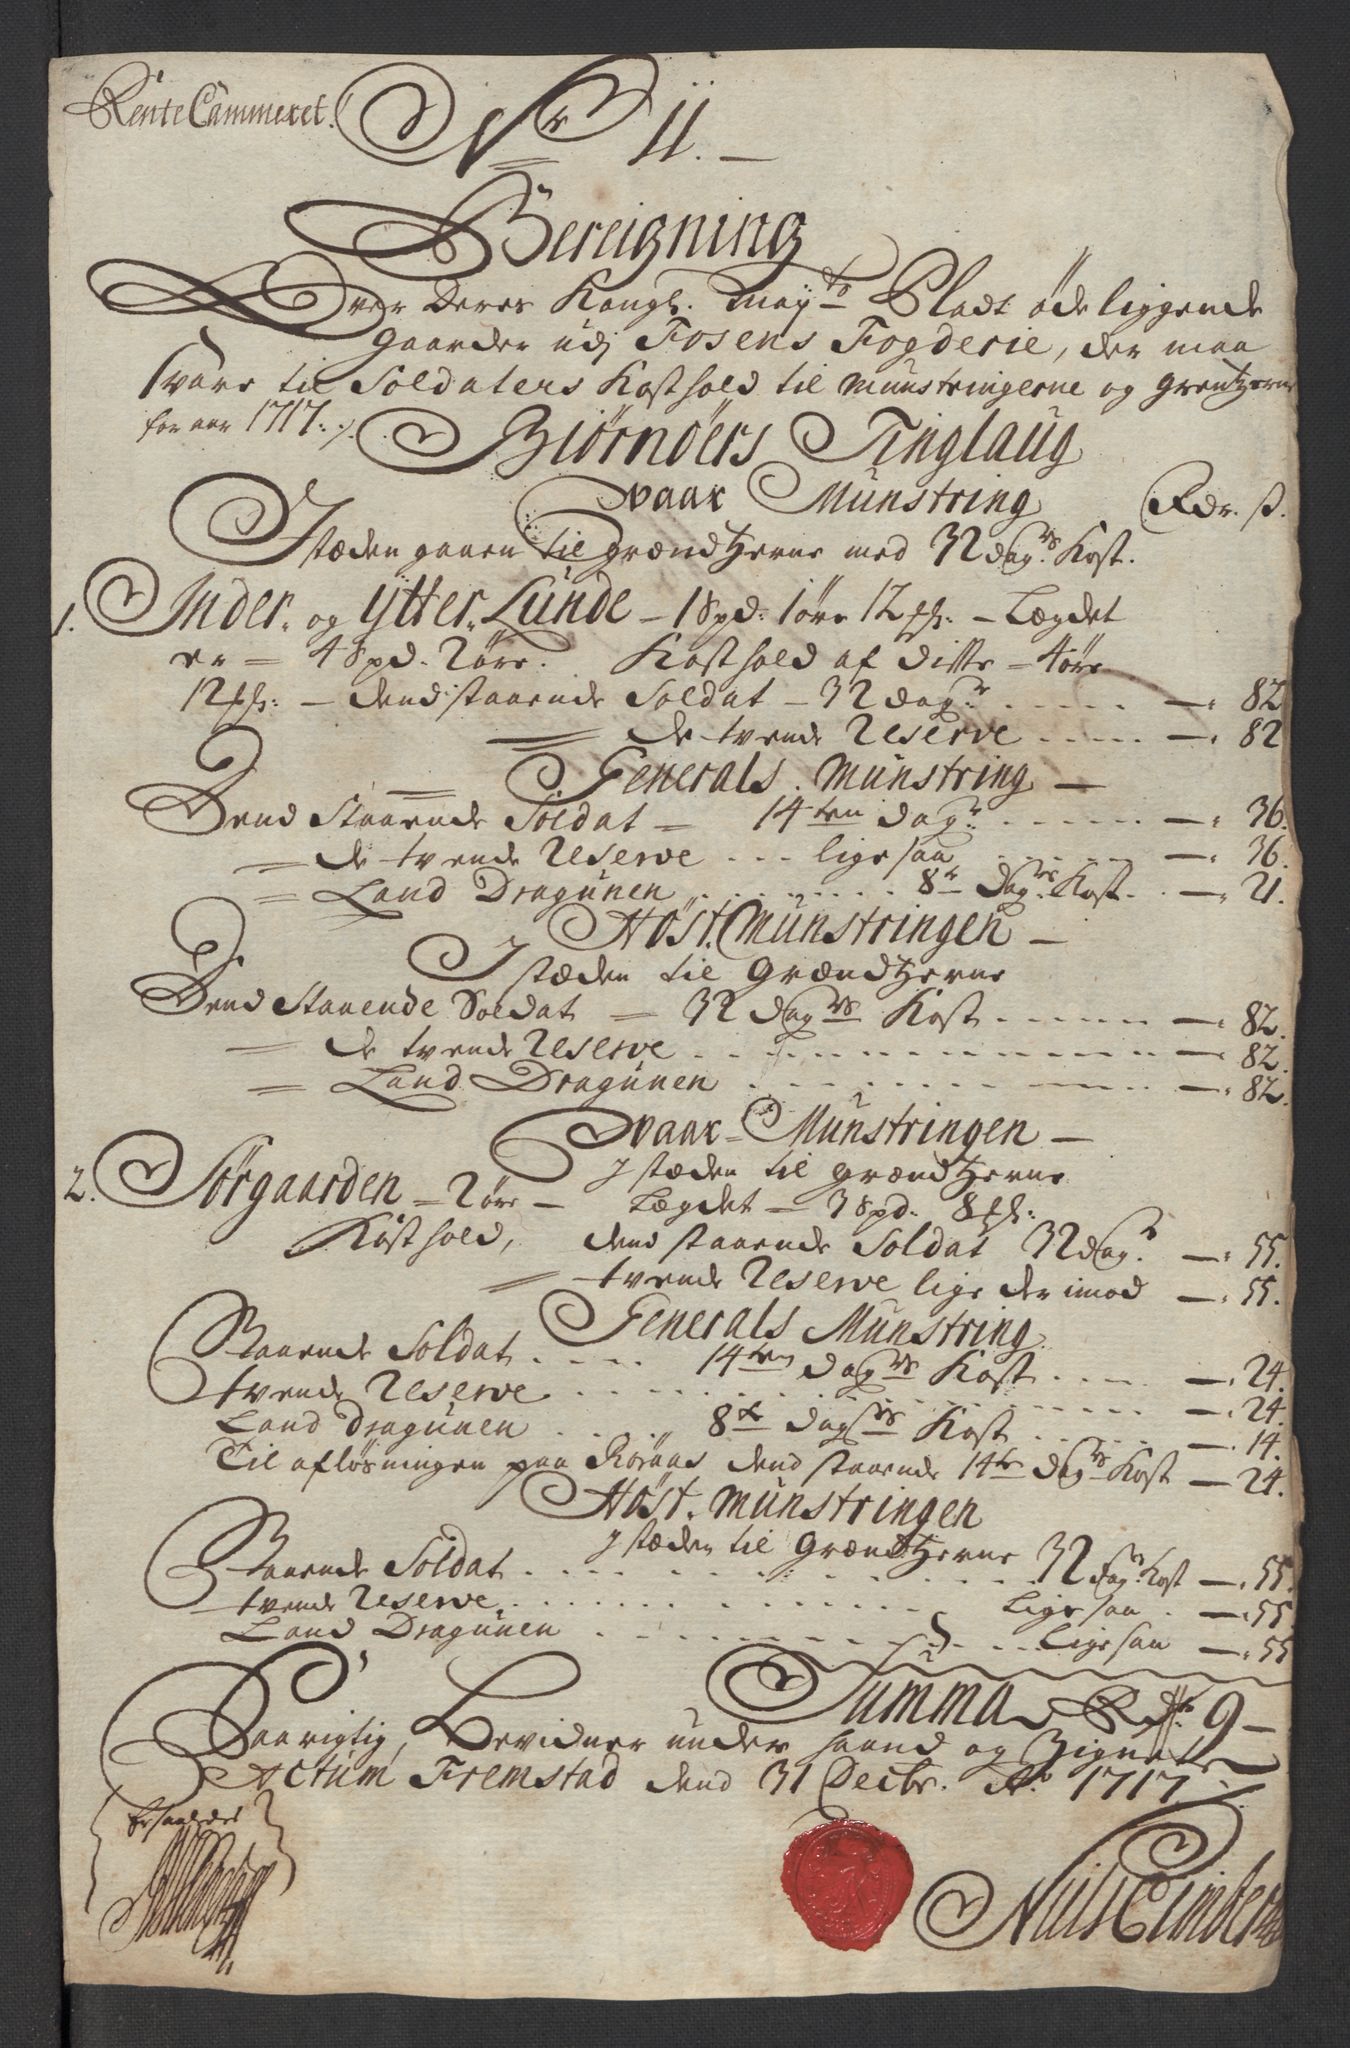 RenteCammeret.
Nr 11.
Bereigning
Over Deres Kongl. Mayts Pladt øde liggende
Gaarder udj Fosens Fogderie, der maa
svare til Soldaters Kosthold til Munstringerne og Grentzerne
for aar 1717.
Biørnøers Tinglaug
Vaar Munstring Rdr. s.
I stæden gaaen til Grændtzerne med 32 dagrs Kost.
1. Inder- og Ytter-Lunde - 1 Spd: 1 øre 12 ... - Lægdet
er = 4 Spd. 2 øre. Kosthold af disse - 4 øre
12 ... - dend staaende Soldat - 32 dagr — 82
= de tvende Reserve — 82
Generals Munstring —
Dend Staaende Soldat = 14ten dagr — 36.
= de tvende Reserve ligesaa — 36.
= Land Dragunen 8te Dagrs Kost. — 21.
Høst Munstringen —
I stæden til Grændtzerne
Dend Staaende Soldat = 32 dagrs Kost — 82.
= de tvende Reserve — 82.
= Land Dragunen — 82.
Vaar-Munstringen —
I stæden til Grændtzerne
2. Sørgaarden = 2 øre - Lægdet = 3 Spd. 8 ...
Kosthold, dend staaende Soldat 32 dagr. — 55.
= tvende Reserve lige derimod — 55.
Generals Munstring.
Staaende Soldat 14ten dagrs Kost — 24.
tvende Reserve — 24.
Land Dragunen 8te dags Kost — 14.
Til afløsningen paa Røraas dend staaende 14te Dagrs Kost — 24.
Høst. Munstringen
I stæden til Grændtzerne
Staaende Soldat 32 dagrs Kost — 55.
tvende Reserve ligesaa — 55.
Land Dragunen ligesaa — 55
Summa Rdr 9 —
Saarigtig, Bevidner under haand og Zignet
Actum Fremstad dend 31 Decbr. Ao 1717
Niels Cimber